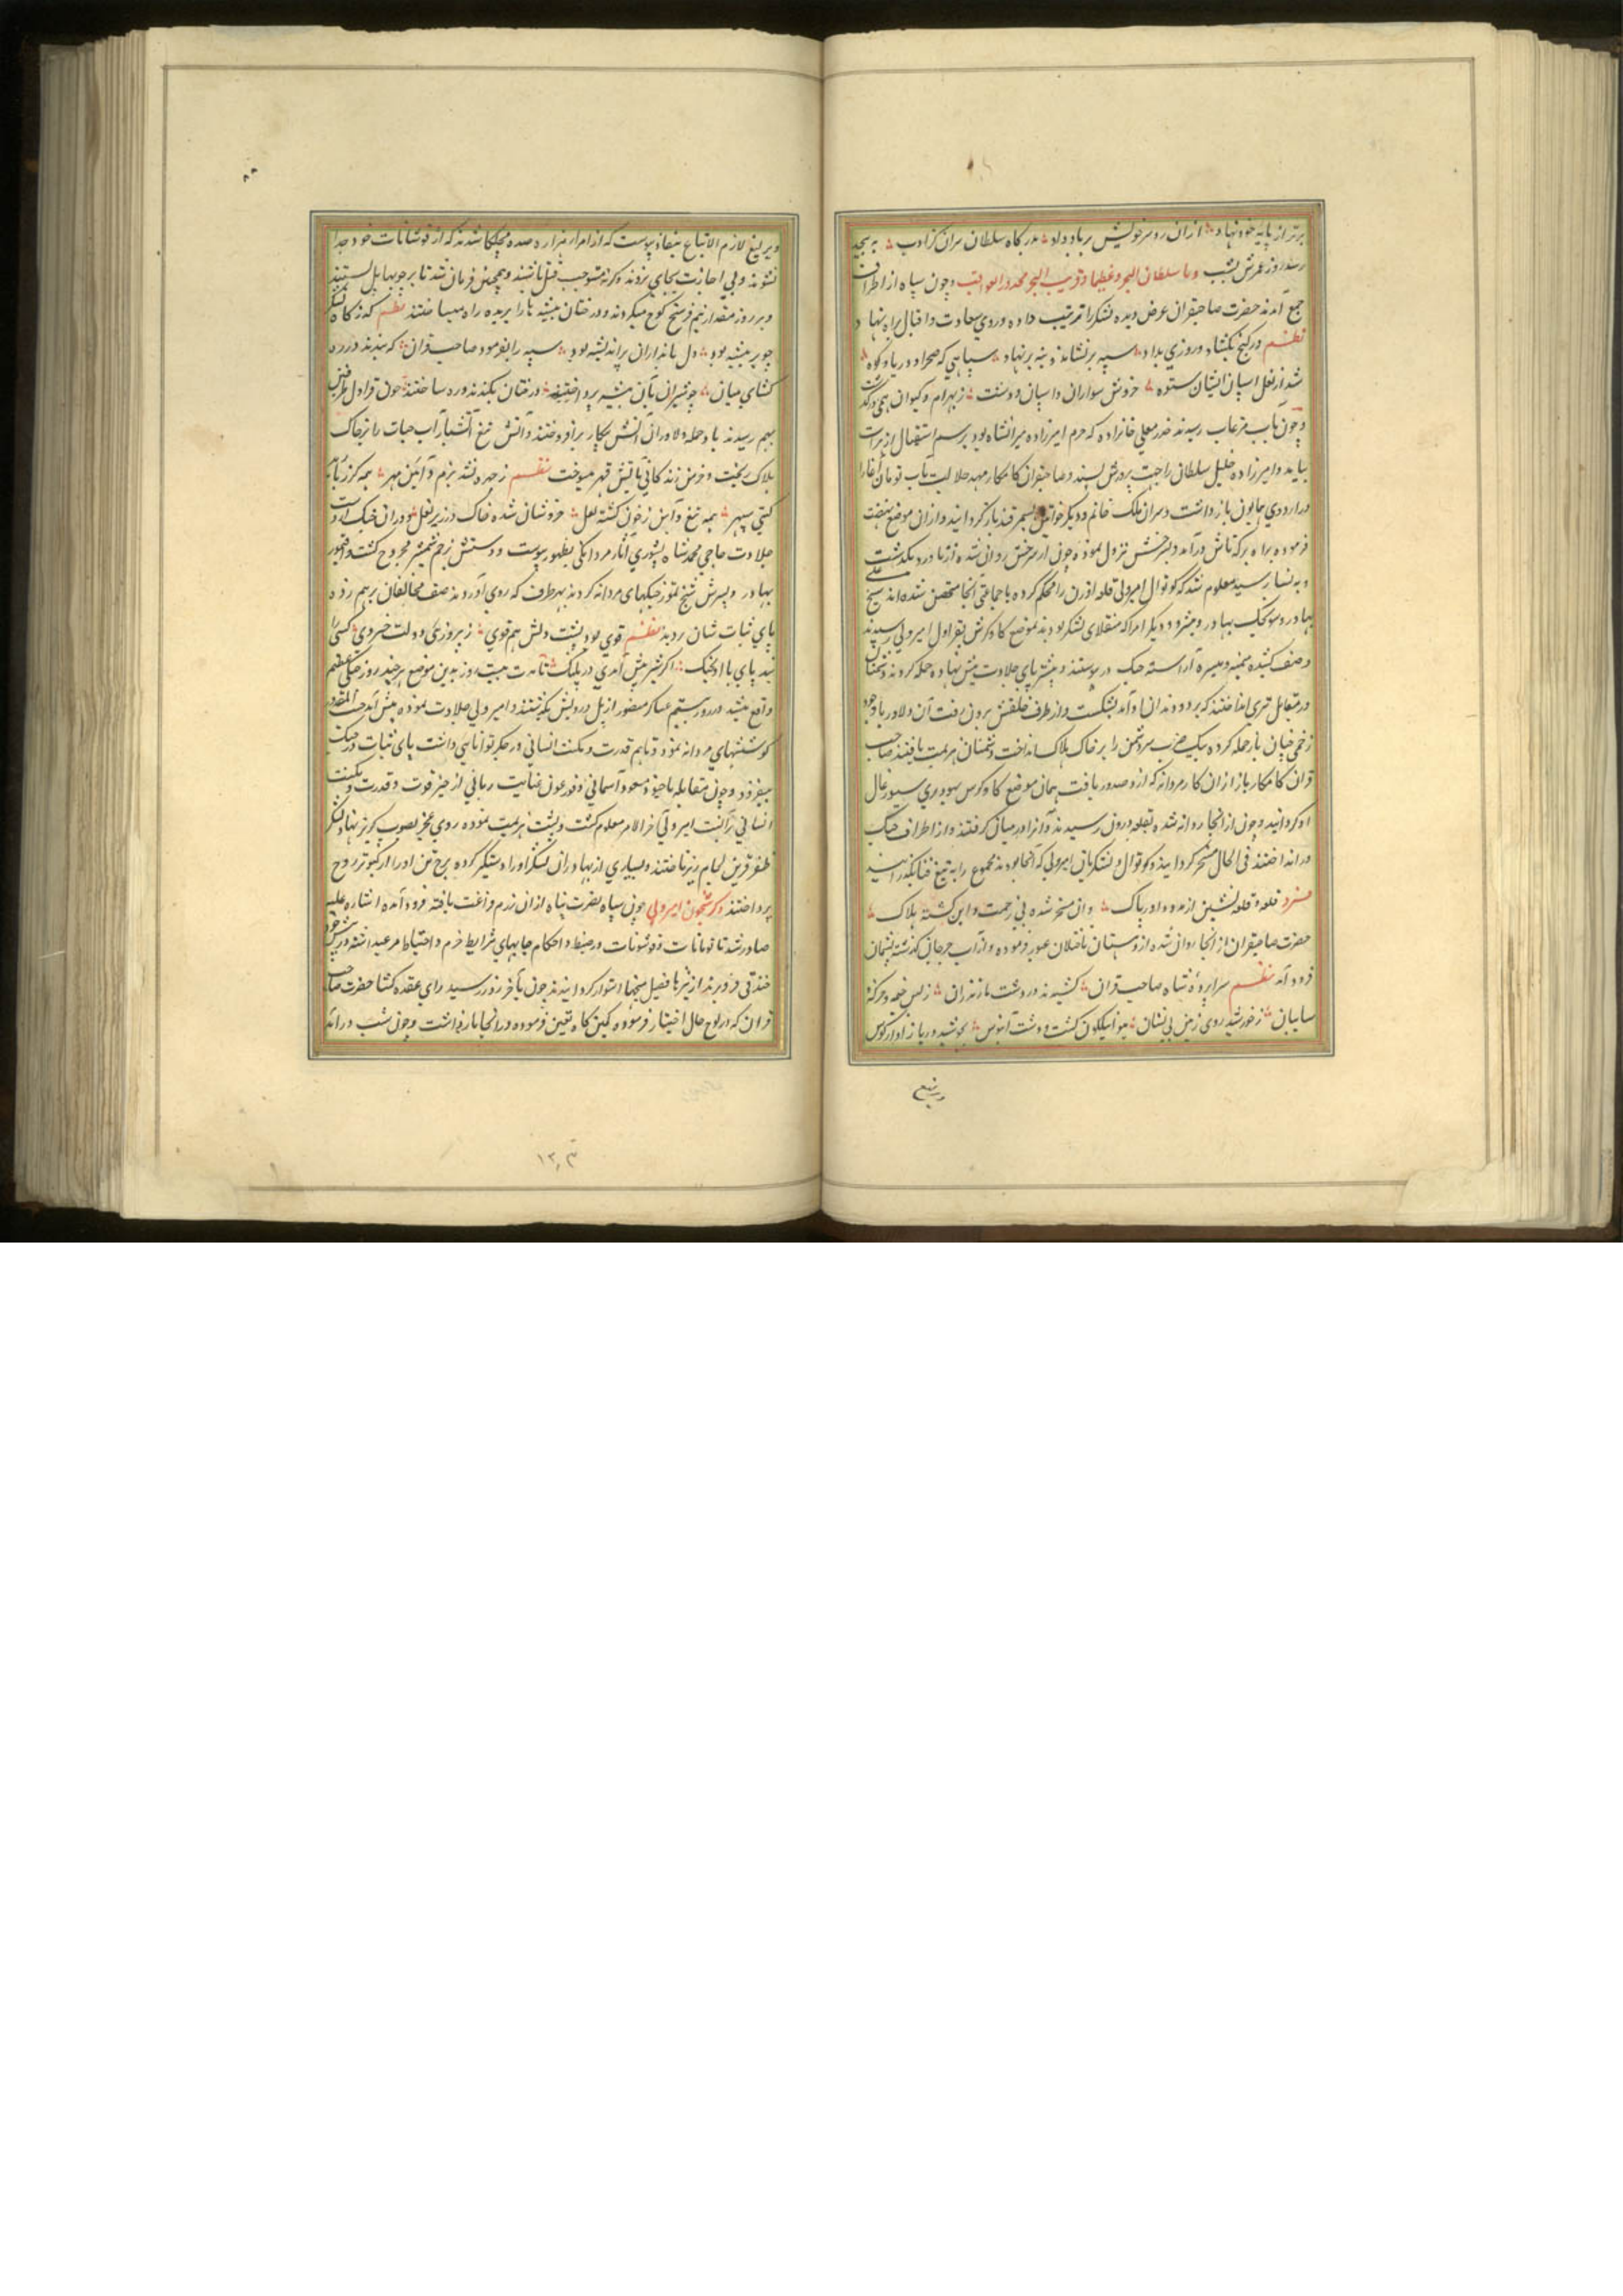 برتر از پایه خود نهاد ازان رو سر خویش بر باد داد بدرگاه سلطان سران کز ادب به سجده
رسد روز عمرش بشب
جمع آمدند حضرت صاحبقران عرض دیده لشکر را ترتیب داده و روی سعادت و اقبال براه نهاد
نظم در گنج بگشاد و روزی بداد سپه بر نشاند و بنه بر نهاد سپاهی که صحرا و دریا و کوه
شد از نعل اسپان ایشان ستوه خروش سواران و اسپان و دشت ز بهرام و کیوان همی در گذشت
و چون بآب مرغاب رسیدند خدر معلی خانزاده که حرم امیرزاده میرانشاه بود برسم استقبال از هرات
بیامد و امیرزاده خلیل سلطان را جهت پرورش بسپرد و صاحبقران کامکار مهد جلالت مآب تومان آغا را
در اردوی همایون باز داشت و سرای ملک خانم و دیگر خواتین بسمرقند باز گردانید و ازان موضع نهضت
فرموده براه برکه تاش درآمد و بسرخس نزول نموده چون از سرخس روان شده از باورد بگذشت
و به نسا رسید معلوم شد که کوتوال امیر ولی قلعه درون را محکم کرده با جماعتی آنجا متحصن شده اند شیخ علی
بهادر و سونجک بهادر و مبشر و دیگر امرا که منقلای لشکر بودند بموضع کاوکرش بقراول امیر ولی رسیدند
و صف کشیده میمنه و میسره آراسته جنگ در پیوستند و مبشر پای جلادت پیش نهاده حمله کرد و دشمنان
در مقابل تیری انداختند که بر دو دندان او آمد بشکست و از طرف حلقش برون رفت آن دلاور با وجود
زخمی چنان باز حمله کرده بیک ضرب سر دشمن را بر خاک هلاک انداخت و دشمنان هزیمت یافتند صاحب
قران کامکار باز ازان کار مردانه که ازو صدور یافت همان موضع کاوکرس سیورغال
او گردانید و چون از انجا روانه شده بقلعه درون رسیدند و آنرا در میان گرفتند و از اطراف جنگ
در انداختند فی الحال مسخر گردانیدند و کوتوال و لشکریان امیر ولی که آنجا بودند مجموع را به تیغ فنا بگذرانید
فرد قلعه و قلعه نشین ازمدد داور پاک وان مسخر شده بی زحمت و این کشته هلاک
حضرت صاحبقران از انجا روان شده از دهستان باقبال عبور فرموده و از آب جرجان گذشته بشمان
فرود آمد نظم سراپرده شاه صاحب قران کشیدند در دشت مازندران ز بس خیمه و خرگه و
سایبان ز خورشید روی زمین بی نشان هوا نیلگون گشت و دشت آبنوس بجوشید دریا ز آواز کوس
و یرلیغ لازم الاتباع بنفاذ پیوست که از امراء هزاره و صده مچلکا ستدند که از قوشانات خود جدا
نشوند و بی اجازت بجای نروند و گرنه مستوجب قتل باشند و همچنین فرمان شد تا بر جویها پل بستند
و هر روز مقدار نیم فرسنگ کوچ میکردند و درختان بیشه ها را بریده راه میساختند نظم که از کاه
جو بر بیشه بود دل نامداران پر اندیشه بود سپه را بفرمود صاحب قران که بندند در ره
کشای میان چو شیران بآن بیشه پرداختند درختان بکندند و ره ساختند چون قراول طرفین
بهم رسیدند باد حمله دلاوران آتش پیکار بر افروختند و آتش تیغ آتشبار آب حیات را بر خاک
هلاک ریخت و خرمن زندگانی بآتش قهر میسوخت نظم ز چهره نشد بزم و آئین مهر
گیتی سپهر همه تیغ و آهن ز خون گشته لعل خروشان شده خاک در زیر نعل و دران جنگ از روی
جلادت حاجی محمد شاه یسوری آثار مردانگی بظهور پیوست و دستش بزخم شمشیر مجروح گشت
بهادر و پسرش شیخ تمور جنگهای مردانه کردند بهر طرف که روی آوردند صف مخالفان بر هم زده
پای ثبات شان ردند نظم قوی بود پشت و دلش هم قوی ز پیروزی و دولت خسروی کسی را
نبد پای با او بجنگ اگر شیر پیش آمدی در پلنگ تا مدت بیست روز بدین موضع هر چند روز جنگی عظیم
واقع میشد و در روز بیستم عساکر منصور از پل درویش بگذشتند و امیر ولی جلادت نموده پیش آمد حسب المقدور
کوششهای مردانه نمود و تا هم قدرت و مکنت انسانی در جگر توانایی داشت پای ثبات در جنگ
میفرود و چون مقابله با جنود مسعود آسمانی و فر عون عنایت ربانی از حیز قوت و قدرت و مکنت
انسانی امیر ولی را آخر الامر معلوم گشت و پشت هزیمت نموده روی عجز بصوب گریز نهاد و لشکر
ظفر قرین لجام ریز تاختند و بسیاری از بهادران لشکر او را دستگیر کرده برج تن او را از کبوتر روح
پرداختند ذکر شبیخون امیر ولی چون سپاه نصرت پناه ازان رزم فراغت یافته فرود آمده اشاره علیه
صادر شد تا تومانات و قوشونات در ضبط و احکام جایهای شرایط حزم و احتیاط مرعی داشته
خندقی فرو برند از تیرها فصیل پنجها استوار گردانیدند چون بآخر روز رسید رای عقده گشا حضرت صاحب
قران که در لوح حال اختیار فرموده کمین گاه تعیین فرموده و در انجا باز داشت و چون شب درآمد
۱۳٫۳